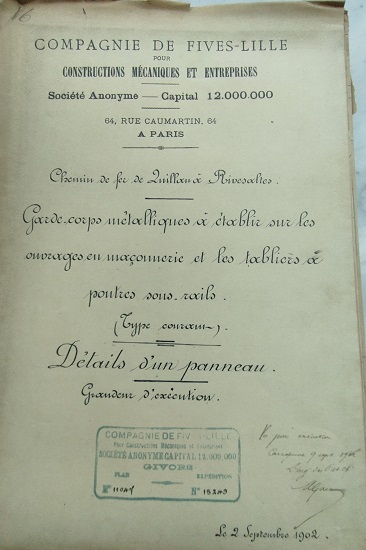 16
COMPAGNIE DE FIVES-LILLE
POUR
CONSTRUCTIONS MÉCANIQUES ET ENTREPRISES
Société Anonyme — Capital 12.000.000
64, RUE CAUMARTIN, 64
A PARIS
Chemin de fer de Quillan à Rivesaltes.
Garde-corps métalliques à établir sur les
ouvrages en maçonnerie et les tabliers à
poutres sous-rails.
(Type courant).
Détails d'un panneau.
Grandeur d'exécution.
COMPAGNIE DE FIVES-LILLE
Pour Constructions Mécaniques et Entreprises
SOCIÉTÉ ANONYME CAPITAL 12.000.000
GIVORS
PLAN EXPEDITION
Vu pour exécution
Le 2 Septembre 1902.